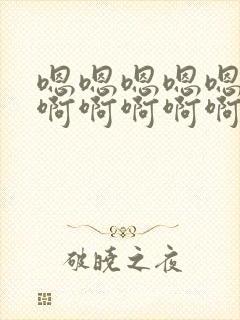 嗯嗯嗯嗯嗯
啊啊啊啊啊
破晓之夜